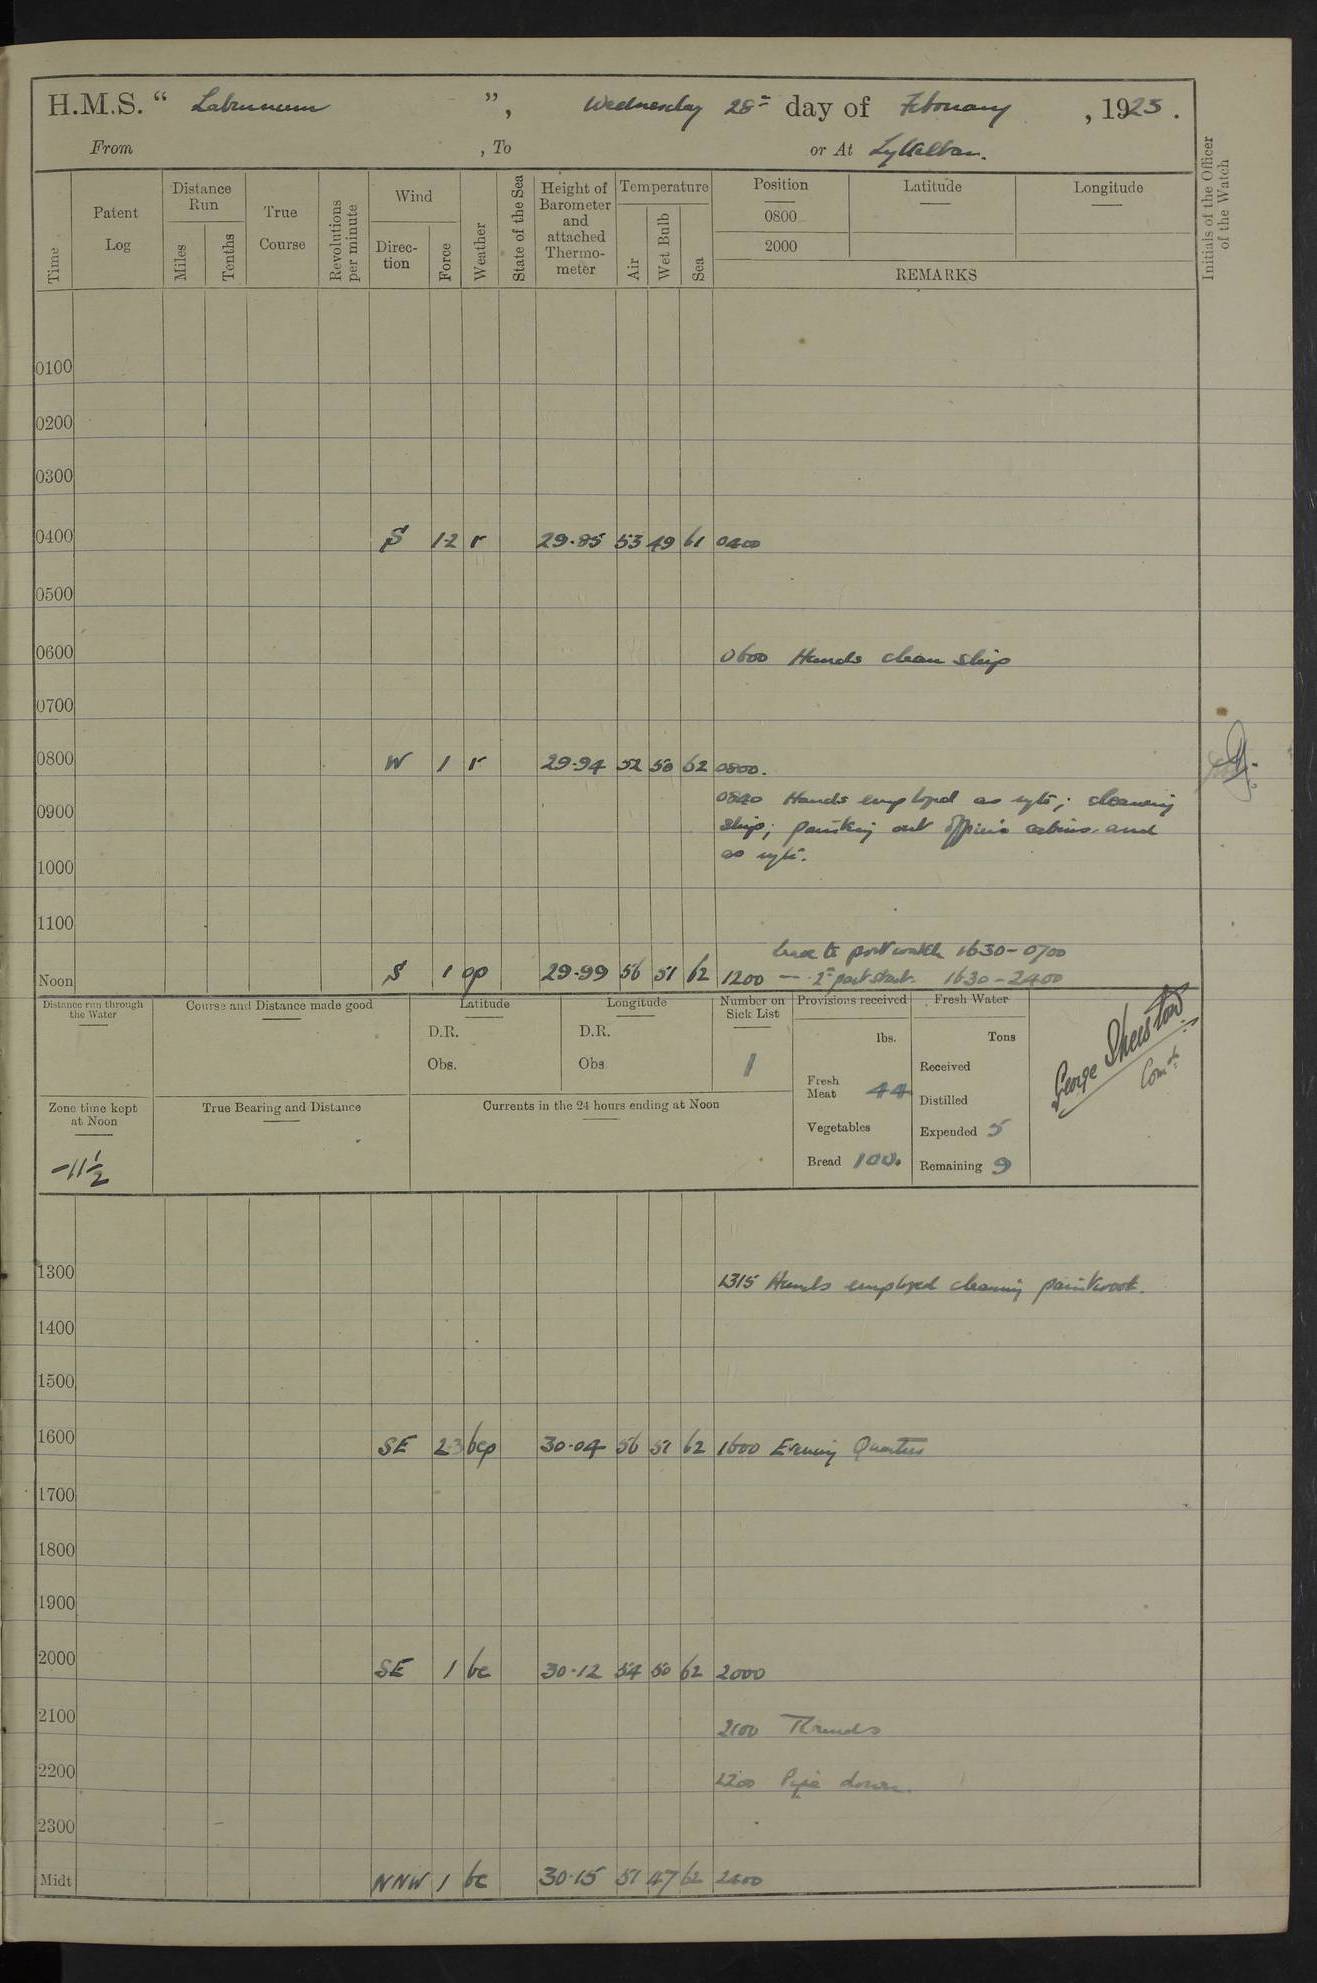 H.M.S. “ Laburnum ”, Wednesday 28th day of February, 1923.
From , To or At Lyttelton.
Time Patent Log Distance Run Miles Tenths True Course Revolutions per minute Wind Direc- tion Force Weather State of the Sea Height of Barometer and attached Thermo- meter Temperature Air Wet Bulb Sea Position 0800 2000 Latitude Longitude
REMARKS
Initials of the Officer of the Watch
0100
0200
0300
0400 S 1-2 r 29.85 53 49 61 0400
0500
0600 0600 Hands clean ship
0700
0800 W 1 r 29.94 52 50 62 0800.
0840 Hands employed as reqte; cleaning
0900 ship; painting out officer's cabins and
as reqte.
1000
1100
Leave to port watch 1630-0700
Noon S 1 op 29.99 56 51 62 1200 — 2nd part starb. 1630-2400
Distance run through the Water
Course and Distance made good
Latitude
D.R.
Obs.
Longitude
D.R.
Obs
Number on Sick List
1
Provisions received
lbs.
Fresh Meat 44
Vegetables
Bread 100.
Fresh Water
Tons
Received
Distilled
Expended 5
Remaining 9
George Sherston
Comdr
Zone time kept at Noon
-11½
True Bearing and Distance
Currents in the 24 hours ending at Noon
1300 1315 Hands employed cleaning paintwork.
1400
1500
1600 SE 2-3 bcp 30.04 56 51 62 1600 Evening Quarters
1700
1800
1900
2000 SE 1 bc 30.12 54 50 62 2000
2100 2100 Rounds
2200 2200 Pipe down.
2300
Midt NNW 1 bc 30.15 51 47 62 2400